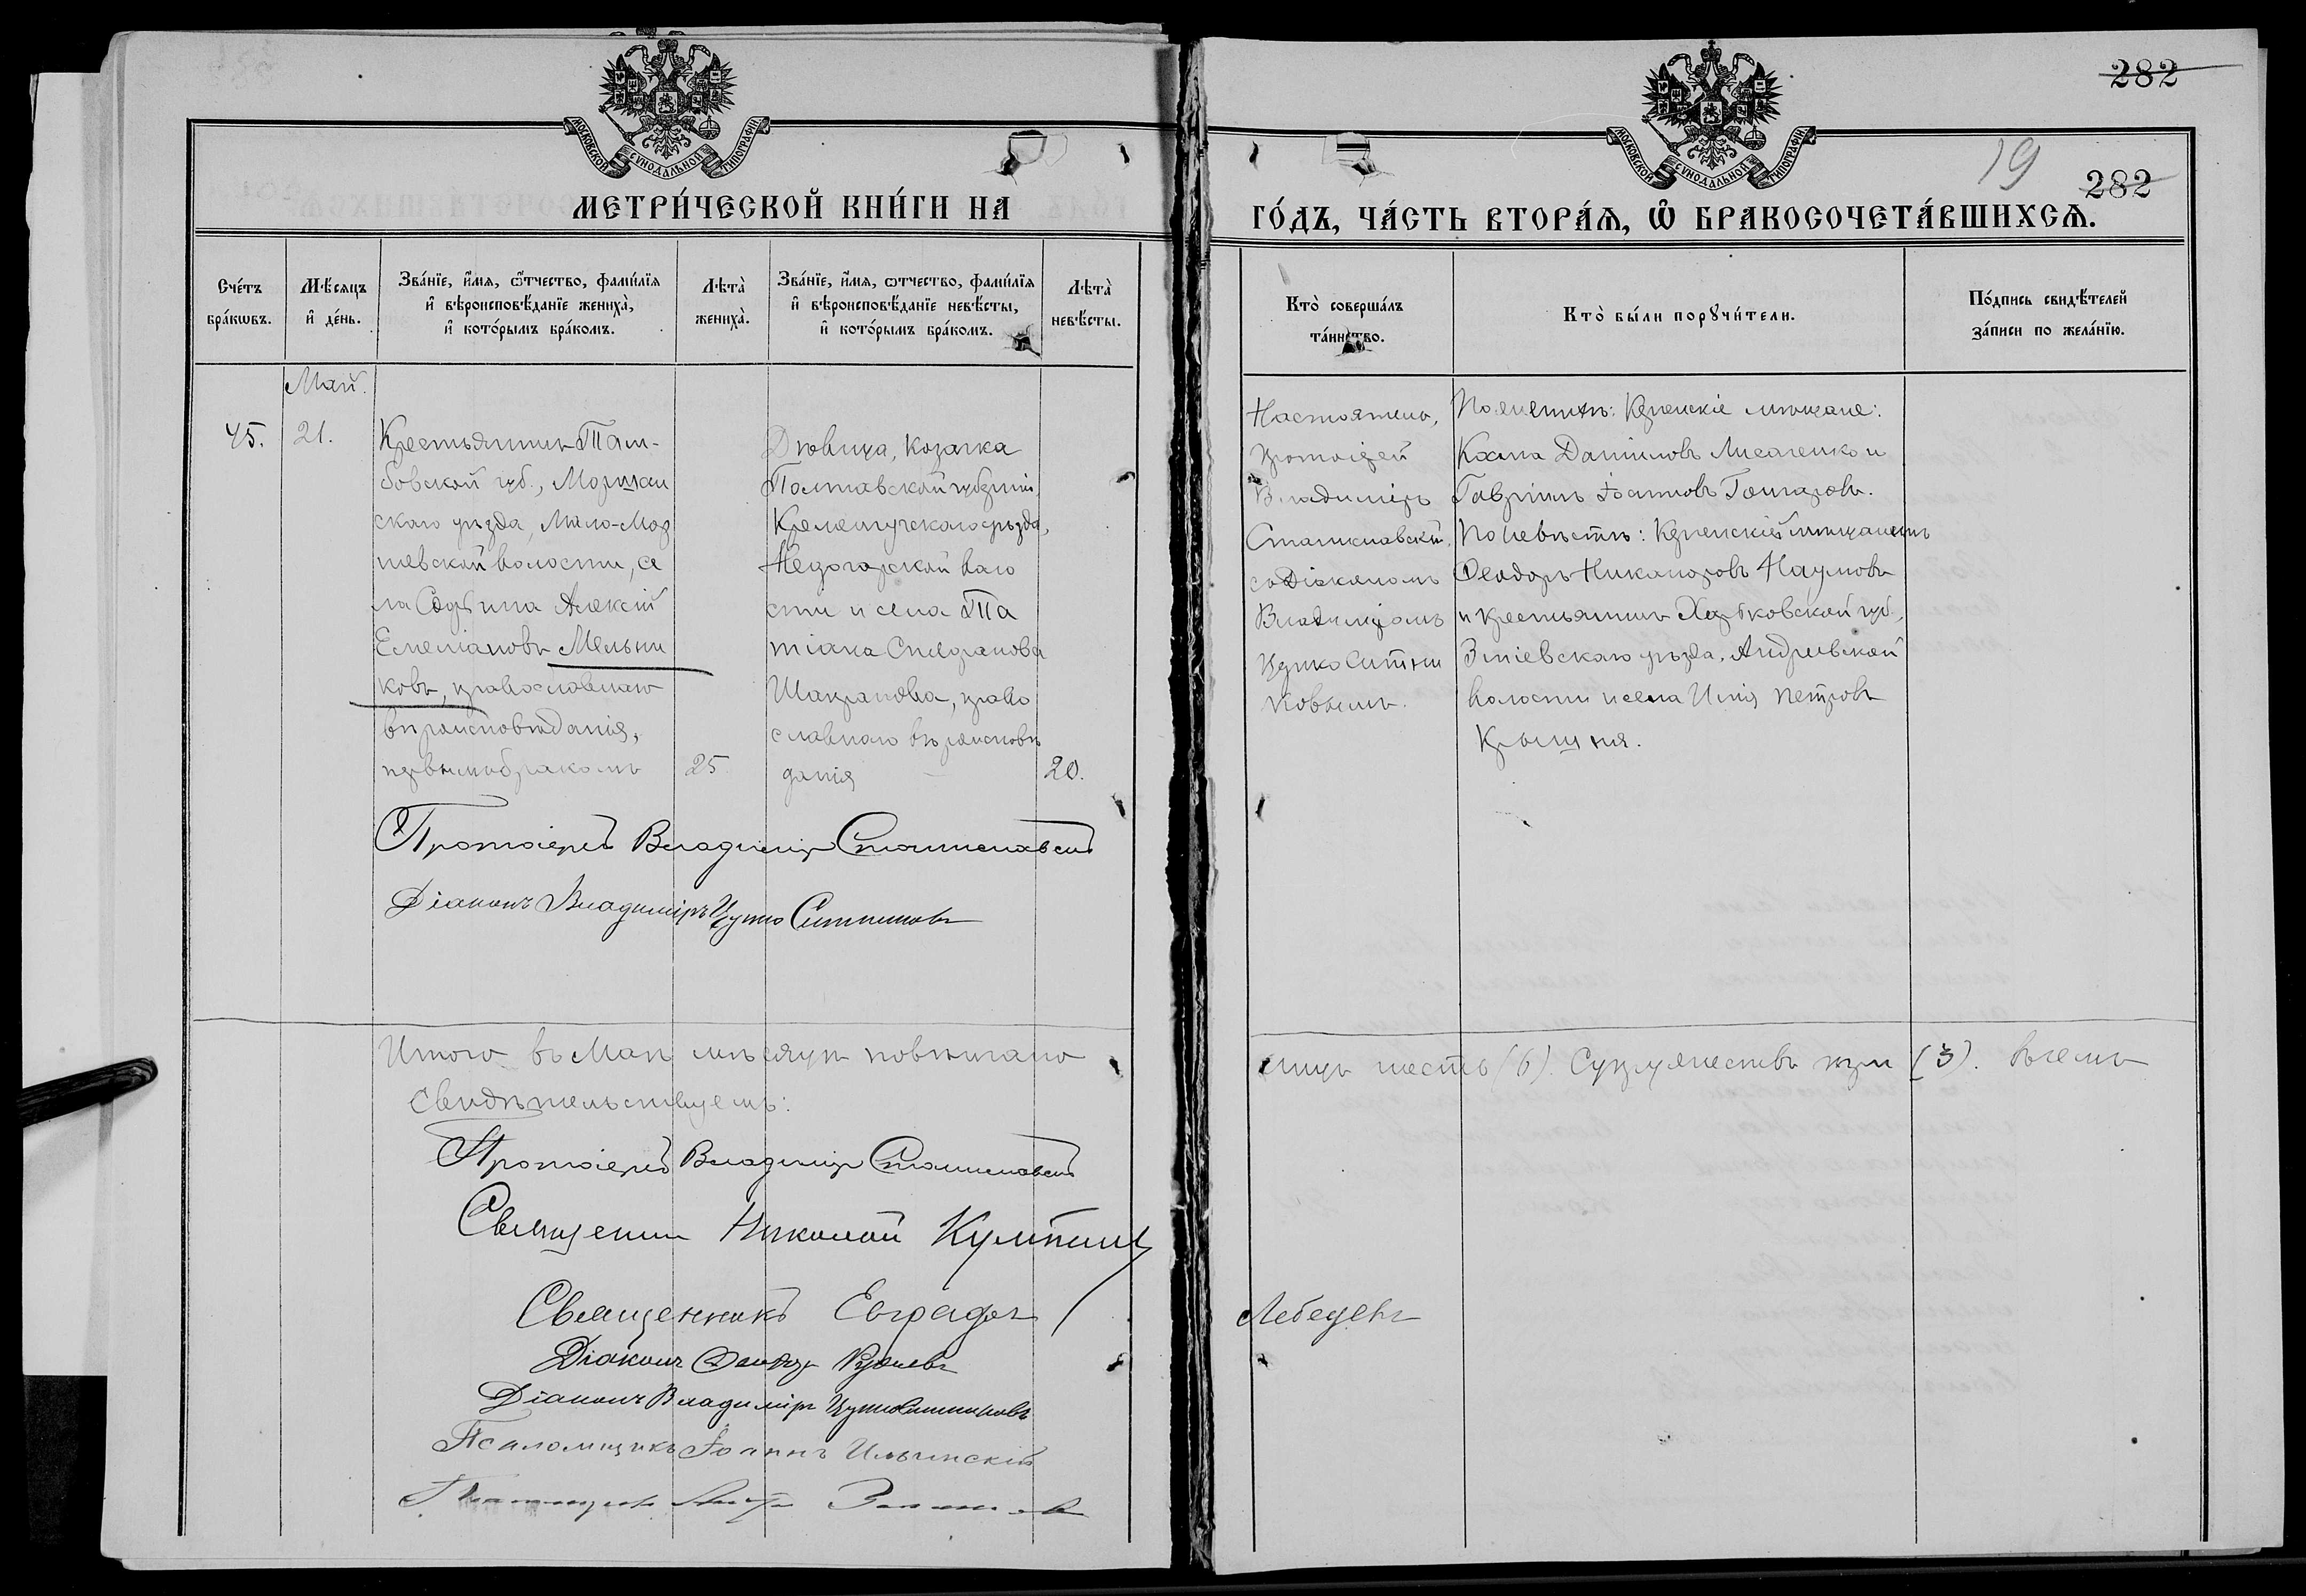 МОСКОВСКОЙ СѴНОДАЛЬНОЙ ТИПОГРАФІИ
МЕТРИ́ЧЕСКОЙ КНИ́ГИ НА
Сче́тъ бра́кωвъ.
Мѣ́сяцъ и҆ де́нь.
Зва́нїе, и҆́мя, ѻ҆́тчество, фами́лїя и҆ вѣроисповѣ́данїе жениха̀, и҆ кото́рымъ бра́комъ.
Лѣта̀ жениха̀.
Зва́нїе, и҆́мя, ѻтчество, фами́лїя и҆ вѣроисповѣ́данїе невѣ́сты, и҆ кото́рымъ бра́комъ.
Лѣта̀ невѣ́сты.
Май.
45.
21.
Крестьянинъ Там-
бовской губ., Моршан
скаго уѣзда, Мало-
шевской волости, се
ла Алексій
Емеліановъ Мельни
ковъ, православнаго
вѣроисповѣданія,
первымъ бракомъ
25
Дѣвица, козачка
Полтавской губерніи,
Кременчугскаго уѣзда,
воло
сти и села Та
тіана
православ
славнаго вѣроисповѣ
данія
20.
Протоіерей Владиміръ Станиславскій
Діаконъ Владиміръ Цупко Ситниковъ
Итого въ Маѣ мѣсяцѣ повѣнчано
Свидѣтельствуемъ:
Протоіерей Владиміръ Станиславскій
Священникъ Николай
Священникъ Евграфъ
Діаконъ Ѳеодоръ
Діаконъ Владиміръ Цупко Ситниковъ
Псаломщикъ Іоаннъ Ильинскій
Псаломщикъ
282
МОСКОВСКОЙ СѴНОДАЛЬНОЙ ТИПОГРАФІИ
19
282
ГО́ДЪ, ЧА́СТЬ ВТОРА́Ѧ, Ѡ҆ БРАКОСОЧЕТА́ВШИХСѦ.
Кто̀ соверша́лъ та́инство.
Кто̀ бы́ли порꙋчи́тели.
По́дпись свидѣ́телей за́писи по жела́нїю.
Настоятель,
протоіерей
Владиміръ
Станиславскій
съ Діакономъ
Владиміромъ
Цупко Ситни
ковымъ.
По женихѣ: Купенскіе мѣщане:
Косма Даниловъ Лисаченко и
Гавріилъ Іоанновъ Гончаровъ.
По невѣстѣ: Купенскій мѣщанинъ
Ѳеодоръ Никаноровъ Наумовъ
и крестьянинъ Харьковской губ.,
Зміевскаго уѣзда, Андреевской
волости и села Илія Петровъ
лицъ шесть (6). Супружествъ три (3). Въ чемъ
Лебедевъ